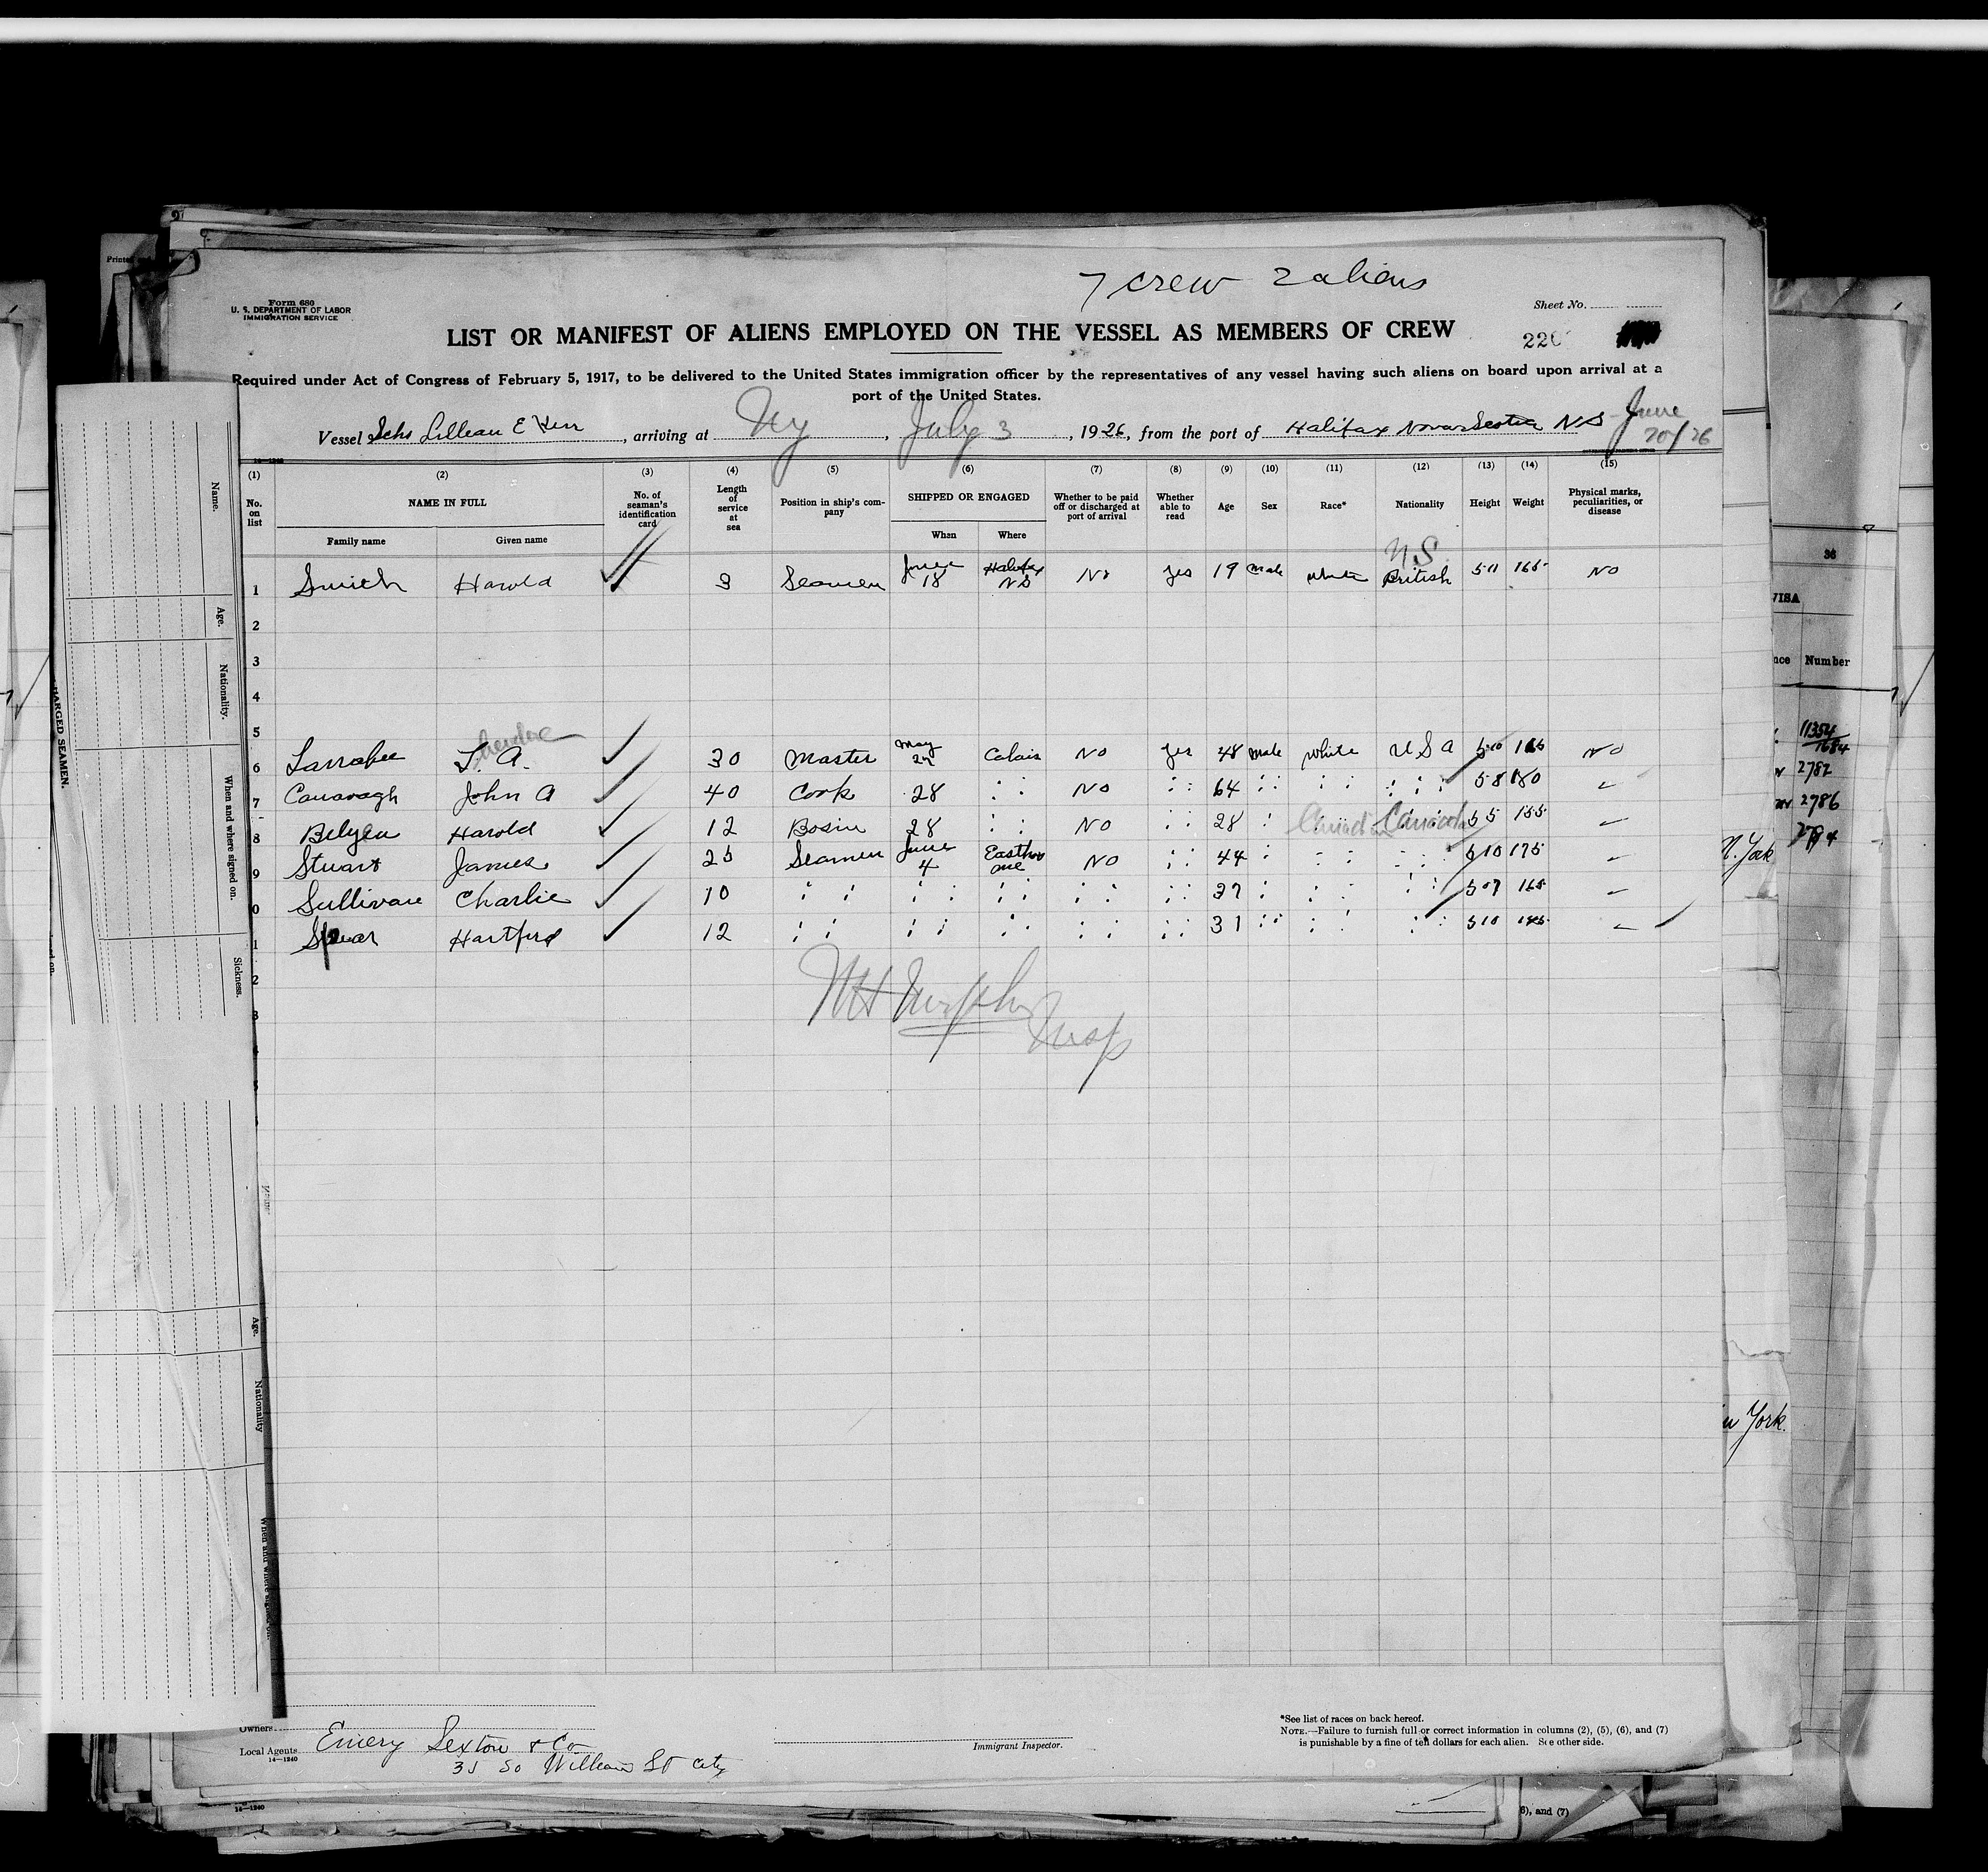 7 crew 2 aliens
Form 680
U. S. DEPARTMENT OF LABOR
IMMIGRATION SERVICE
Sheet No.
LIST OR MANIFEST OF ALIENS EMPLOYED ON THE VESSEL AS MEMBERS OF CREW
220
Required under Act of Congress of February 5, 1917, to be delivered to the United States immigration officer by the representatives of any vessel having such aliens on board upon arrival at a
port of the United States.
Vessel Schs Lillean E Kerr, arriving at Ny, July 3, 1926, from the port of Halifax Nova Scotia NS June 20/26
14—1240
(1) (2) (3) (4) (5) (6) (7) (8) (9) (10) (11) (12) (13) (14) (15)
No. on list
NAME IN FULL
Family name
Given name
No. of seaman's identification card
Length of service at sea
Position in ship's company
SHIPPED OR ENGAGED
When
Where
Whether to be paid off or discharged at port of arrival
Whether able to read
Age
Sex
Race*
Nationality
Height
Weight
Physical marks, peculiarities, or disease
NS
1 Smith Harold 3 Seamen June 18 Halifax NS No Yes 19 male white British 5 11 165 No
2
3
4
5
Theodore
6 Larrabee T. A. 30 Master May 27 Calais No Yes 48 male white U S A 5 10 165 No
7 Cavanagh John A 40 Cook 28 " " No " " 64 " " " " " " 5 8 180
8 Belyea Harold 12 Bosin 28 " " No " " 28 " Canad Canada 5 5 155
9 Stuart James 25 Seamen June 4 No " " 44 " " " " " 5 10 175
0 Sullivan Charlie 10 " " " " " " " " " " 37 " " " " " 5 07 165
1 Spear Hartford 12 " " " " " " " " " " 31 " " " " " " 5 10
2
3
Murphy
Insp
Owners
Local Agents Emery Sexton & Co
14—1240
35 So William St City
Immigrant Inspector.
*See list of races on back hereof.
NOTE.—Failure to furnish full or correct information in columns (2), (5), (6), and (7)
is punishable by a fine of ten dollars for each alien. See other side.
Name.
Age.
Nationality.
When and where signed on.
Sickness.
HARGED SEAMEN.
Age.
Nationality
When and where
36
VISA
Number
11354
1684
2782
2786
2794
N. York
York.
14—1240
6), and (7)